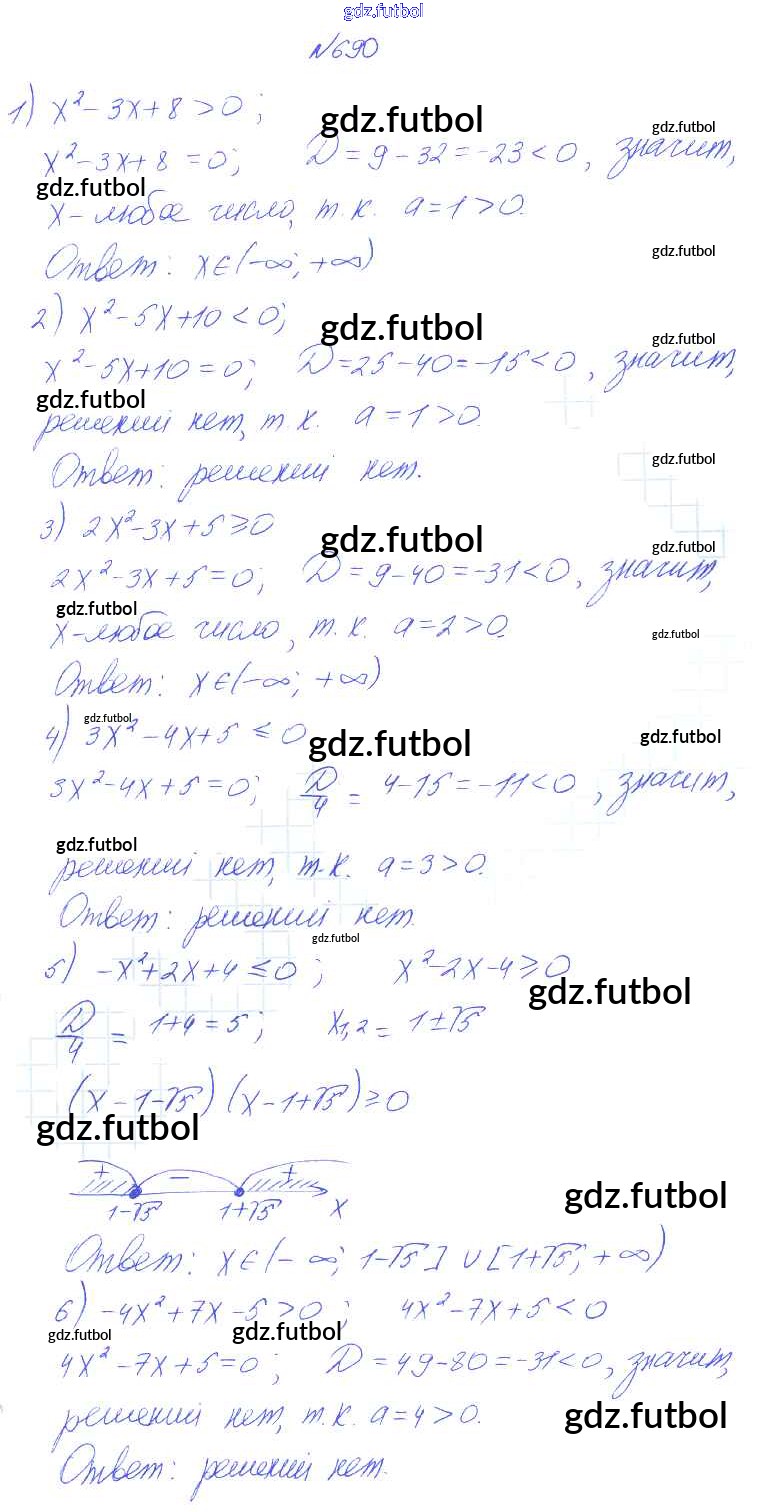 gdz.futbol
№690
1) x² - 3x + 8 > 0;
gdz.futbol
gdz.futbol
x² - 3x + 8 = 0; D = 9 - 32 = -23 < 0, значит,
gdz.futbol
x - любое число, т.к. a = 1 > 0.
gdz.futbol
Ответ: x ∈ (-∞; +∞)
2) x² - 5x + 10 < 0;
gdz.futbol
gdz.futbol
x² - 5x + 10 = 0; D = 25 - 40 = -15 < 0, значит,
gdz.futbol
решений нет, т.к. a = 1 > 0.
gdz.futbol
Ответ: решений нет.
3) 2x² - 3x + 5 ≥ 0
gdz.futbol
gdz.futbol
2x² - 3x + 5 = 0; D = 9 - 40 = -31 < 0, значит,
gdz.futbol
x - любое число, т.к. a = 2 > 0.
gdz.futbol
Ответ: x ∈ (-∞; +∞)
gdz.futbol
4) 3x² - 4x + 5 ≤ 0
gdz.futbol
gdz.futbol
3x² - 4x + 5 = 0; D/4 = 4 - 15 = -11 < 0, значит,
gdz.futbol
решений нет, т.к. a = 3 > 0.
Ответ: решений нет.
gdz.futbol
5) -x² + 2x + 4 ≤ 0; x² - 2x - 4 ≥ 0
gdz.futbol
D/4 = 1 + 4 = 5; x₁,₂ = 1 ± √5
(x - 1 - √5)(x - 1 + √5) ≥ 0
gdz.futbol
+ - +
gdz.futbol
1-√5 1+√5 x
Ответ: x ∈ (-∞; 1-√5] ∪ [1+√5; +∞)
6) -4x² + 7x - 5 > 0; 4x² - 7x + 5 < 0
gdz.futbol
gdz.futbol
4x² - 7x + 5 = 0; D = 49 - 80 = -31 < 0, значит,
решений нет, т.к. a = 4 > 0.
gdz.futbol
Ответ: решений нет.